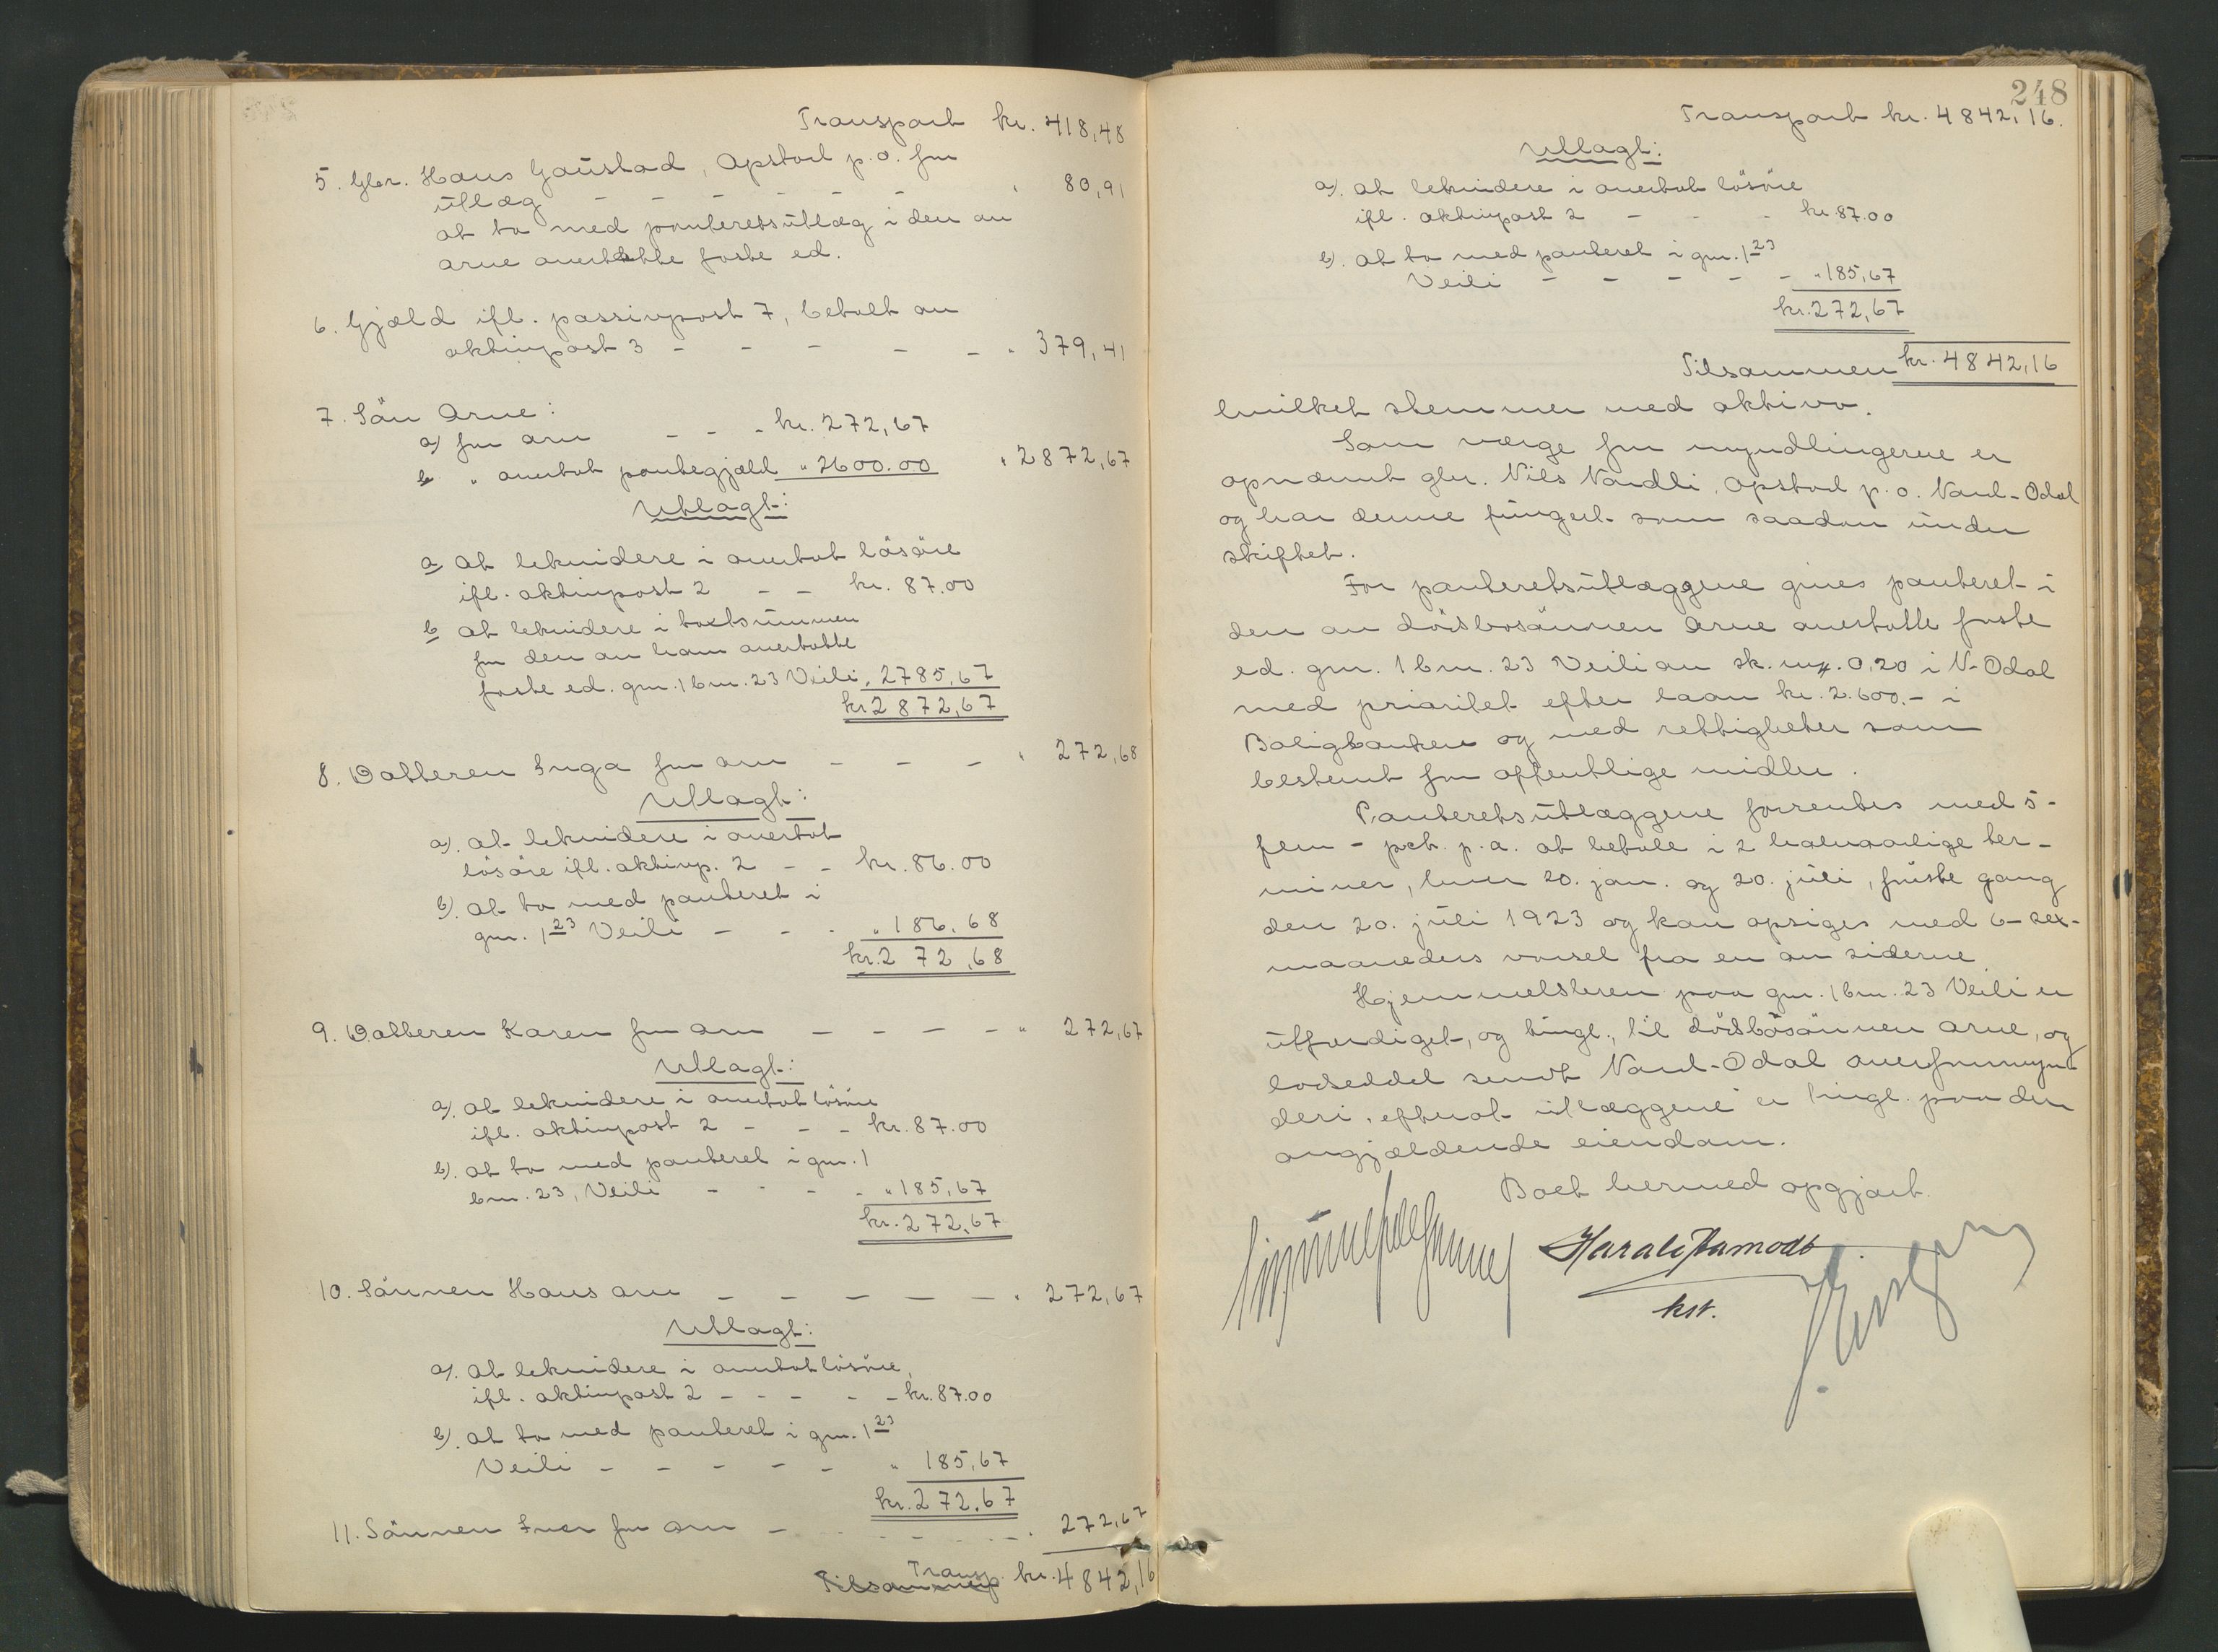 Transport kr. 418,48
5. Gbr. Hans Gaustad, Opstad p.o. for
utlæg - - - - - " 80,91
at ta med panteretsutlæg i den av
Arne overtatte faste ed.
6. Gjæld ifl. passivpost 7, betalt av
aktivpost 3 - - - - - " 379,41
7. Søn Arne:
a) for arv - - - kr. 272,67
b " overtat pantegjæld " 2600.00 " 2872,67
Utlagt:
a at lekvidere i overtat løsøre
ifl. aktivpost 2 - - kr. 87.00
b at lekvidere i takstsummen
for den av ham overtatte
faste ed. gnr. 1 bnr. 23 Veili " 2785,67
kr 2872,67
8. Datteren Inga for arv - - - " 272,68
Utlagt:
a). at lekvidere i overtat
løsøre ifl. aktivp. 2 - - kr. 86.00
b). at ta med panteret i
gnr. 1 23 Veili - - - " 186,68
kr. 272,68
9. Datteren Karen for arv - - - - " 272,67
Utlagt:
a). at lekvidere i overtat løsøre
ifl. aktivpost 2 - - - kr. 87.00
b). at ta med panteret i gnr. 1
bnr. 23, Veili - - - - " 185,67
kr. 272,67
10. Sønnen Hans arv - - - - - " 272,67
Utlagt:
a). at lekvidere i overtat løsøre,
ifl. aktivpost 2 - - - - - kr. 87.00
b). at ta med panteret i gnr. 1 23
Veili - - - - - " 185,67
kr. 272,67
11. Sønnen Iver for arv - - - - - " 272,67
Transp.
Tilsammen kr. 4842,16
248
Transport kr. 4842,16.
Utlagt:
a). at lekvidere i overtat løsøre
ifl. aktivpost 2 - - - kr. 87.00
b). at ta med panteret i gnr. 1 23
Veili - - - - - " 185,67
kr. 272,67
Tilsammen kr. 4842,16
hvilket stemmer med aktiva.
Som verge for myndlingerne er
opnævnt gbr. Nils Nordli, Opstad p.o. Nord-Odal
og har denne fungert som saadan under
skiftet.
For panteretsutlæggene gives panteret i
den av dødsbosønnen Arne overtatte faste
ed. gnr. 1 bnr. 23 Veili av sk. mrk. 0,20 i N-Odal
med prioritet efter laan kr. 2.600.- i
Boligbanken og med rettigheter som
bestemt for offentlige midler.
Panteretsutlæggene forrentes med 5-
fem - pct. p.a. at betale i 2 halvaarlige ter-
miner, hver 20. jan. og 20. juli, første gang
den 20. juli 1923 og kan opsiges med 6-sex-
maaneders varsel fra en av siderne.
Hjemmelsbrev paa gnr. 1 bnr. 23 Veili er
utfærdiget, og tingl., til dødsbosønnen Arne, og
lodseddel sendt Nord-Odal overformyn-
deri, efterat utlæggene er tingl. paa den
angjældende eiendom.
Boet hermed opgjort.
Harald Aamodt
kst.